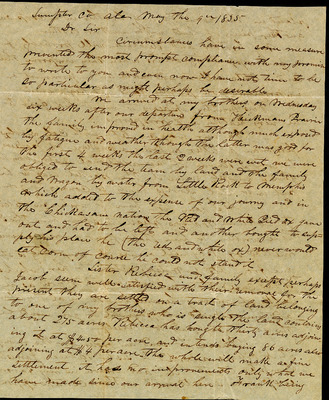 Sumpter Co Ala May the 9th 1835
Dr Sir
Circumstances have in some measure
prevented the most prompt compliance with my promise
to write to you and even now I have not time to be
so particular as might perhaps be desirable
We arrived at my brothers on Wednesday
six weeks after our departure from Prairie
the family improved in health although much exposed
by fatigue and weather though the latter was good for
the first 4 weeks the last 2 weeks were wet we were
obliged to send the team by land and the family
and wagon by water from Little Rock to Memphis
which added to the expense of our journey and in
the Chickasaw nation the Red and White
out and had to be left and another bought to supply
his place he (the red and white ox) never would
eat corn of course he could not stand it
Sister Rebecca and family except perhaps
Jacob seem well satisfied with their for the
present they are settled on a tract of land belonging
to one of my brothers who is single the land contains
about 275 acres Rebecca has bought thirty acres adjoin
ing it at per acre and intends buying 86 acres also
adjoining at $4 per acre the whole will make a fine
settlement it has no improvements only what we
have made since our arrival here living